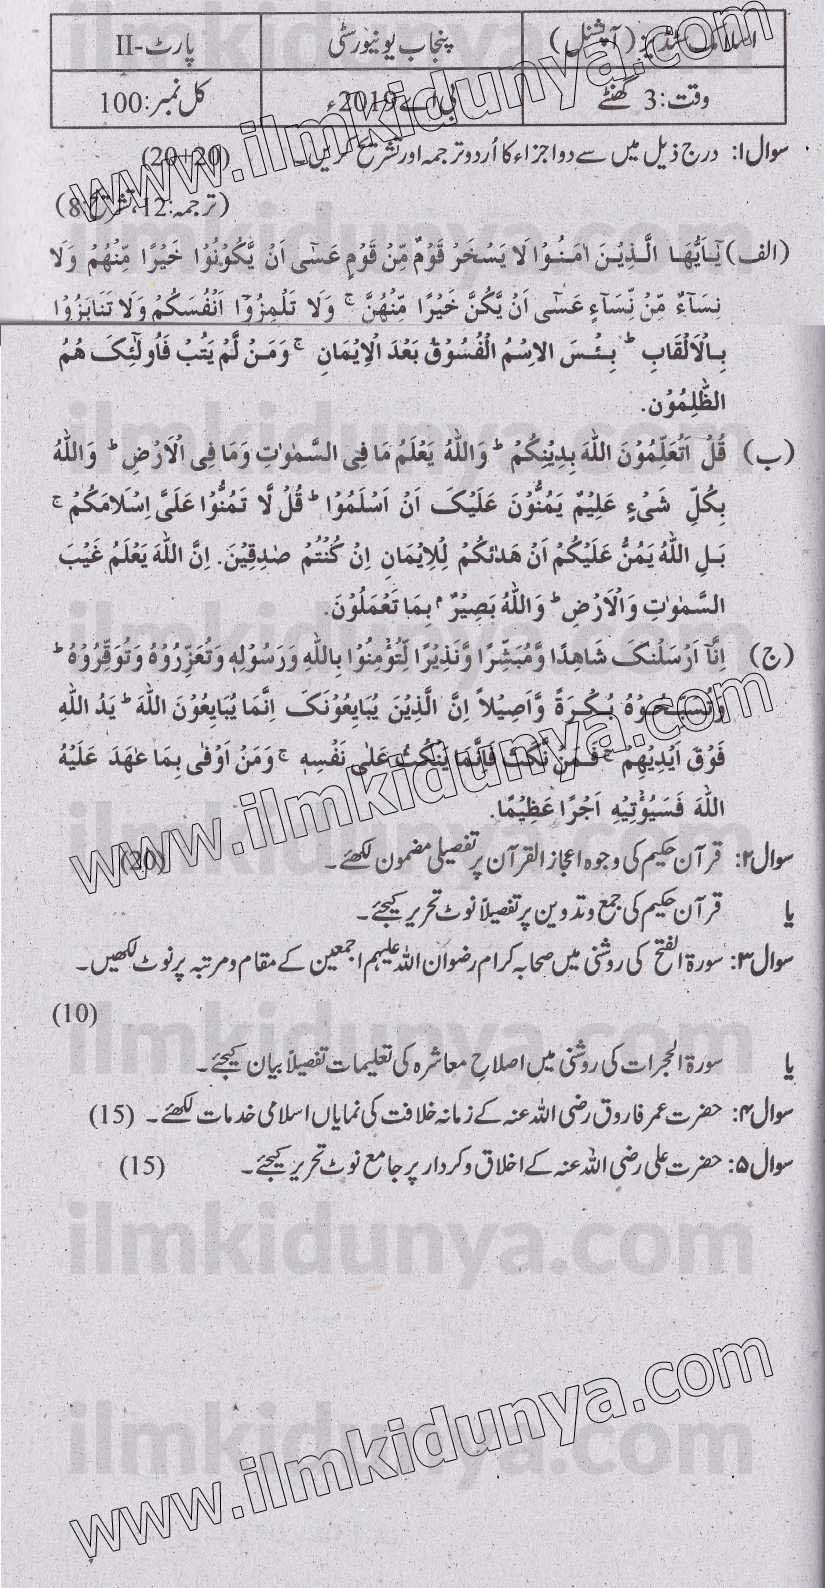 اسلامک سٹڈیز (آپشنل) پنجاب یونیورسٹی پارٹ-II
وقت: 3 گھنٹے بی اے 2019ء کل نمبر: 100
سوال ۱: درج ذیل میں سے دو اجزاء کا اُردو ترجمہ اور تشریح کریں۔ (20+20)
(ترجمہ: 12، تشریح 8)
(الف) يٰۤاَيُّهَا الَّذِيْنَ اٰمَنُوْا لَا يَسْخَرْ قَوْمٌ مِّنْ قَوْمٍ عَسٰۤى اَنْ يَّكُوْنُوْا خَيْرًا مِّنْهُمْ وَلَا
نِسَآءٌ مِّنْ نِّسَآءٍ عَسٰۤى اَنْ يَّكُنَّ خَيْرًا مِّنْهُنَّ ۚ وَلَا تَلْمِزُوْۤا اَنْفُسَكُمْ وَلَا تَنَابَزُوْا
بِالْاَلْقَابِ ؕ بِئْسَ الِاسْمُ الْفُسُوْقُ بَعْدَ الْاِيْمَانِ ۚ وَمَنْ لَّمْ يَتُبْ فَاُولٰٓئِكَ هُمُ
الظّٰلِمُوْن.
(ب) قُلْ اَتُعَلِّمُوْنَ اللّٰهَ بِدِيْنِكُمْ ؕ وَاللّٰهُ يَعْلَمُ مَا فِى السَّمٰوٰتِ وَمَا فِى الْاَرْضِ ؕ وَاللّٰهُ
بِكُلِّ شَىْءٍ عَلِيْمٌ يَمُنُّوْنَ عَلَيْكَ اَنْ اَسْلَمُوْا ؕ قُلْ لَّا تَمُنُّوْا عَلَىَّ اِسْلَامَكُمْ ۚ
بَلِ اللّٰهُ يَمُنُّ عَلَيْكُمْ اَنْ هَدٰىكُمْ لِلْاِيْمَانِ اِنْ كُنْتُمْ صٰدِقِيْنَ. اِنَّ اللّٰهَ يَعْلَمُ غَيْبَ
السَّمٰوٰتِ وَالْاَرْضِ ؕ وَاللّٰهُ بَصِيْرٌۢ بِمَا تَعْمَلُوْنَ.
(ج) اِنَّاۤ اَرْسَلْنٰكَ شَاهِدًا وَّمُبَشِّرًا وَّنَذِيْرًا لِّتُؤْمِنُوْا بِاللّٰهِ وَرَسُوْلِهٖ وَتُعَزِّرُوْهُ وَتُوَقِّرُوْهُ ؕ
وَتُسَبِّحُوْهُ بُكْرَةً وَّاَصِيْلًا اِنَّ الَّذِيْنَ يُبَايِعُوْنَكَ اِنَّمَا يُبَايِعُوْنَ اللّٰهَ ؕ يَدُ اللّٰهِ
فَوْقَ اَيْدِيْهِمْ ۚ فَمَنْ نَّكَثَ فَاِنَّمَا يَنْكُثُ عَلٰى نَفْسِهٖ ۚ وَمَنْ اَوْفٰى بِمَا عٰهَدَ عَلَيْهُ
اللّٰهَ فَسَيُؤْتِيْهِ اَجْرًا عَظِيْمًا.
سوال ۲: قرآن حکیم کی وجوہ اعجاز القرآن پر تفصیلی مضمون لکھئے۔ (20)
یا قرآن حکیم کی جمع و تدوین پر تفصیلاً نوٹ تحریر کیجئے۔
سوال ۳: سورۃ الفتح کی روشنی میں صحابہ کرام رضوان اللہ علیہم اجمعین کے مقام و مرتبہ پر نوٹ لکھیں۔
(10)
یا سورۃ الحجرات کی روشنی میں اصلاحِ معاشرہ کی تعلیمات تفصیلاً بیان کیجئے۔
سوال ۴: حضرت عمر فاروق رضی اللہ عنہ کے زمانہ خلافت کی نمایاں اسلامی خدمات لکھئے۔ (15)
سوال ۵: حضرت علی رضی اللہ عنہ کے اخلاق و کردار پر جامع نوٹ تحریر کیجئے۔ (15)
www.ilmkidunya.com
www.ilmkidunya.com
www.ilmkidunya.com
ilmkidunya.com
ilmkidunya.com
ilmkidunya.com
ilmkidunya.com
ilmkidunya.com
ilmkidunya.com
ilmkidunya.com
ilmkidunya.com